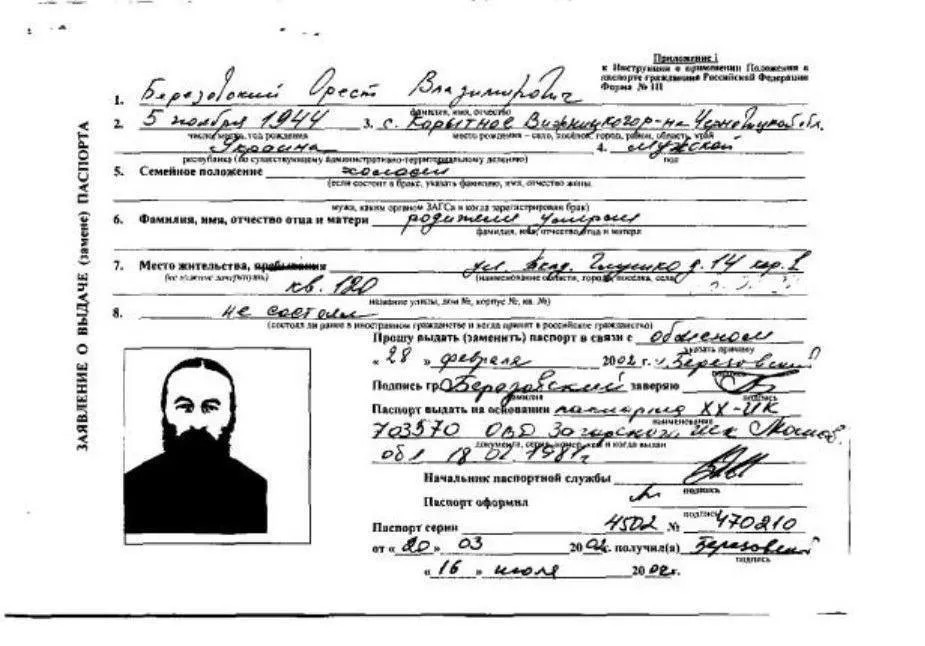 Приложение 1
к Инструкции о применении Положения о
паспорте гражданина Российской Федерации
Форма № 1П
ЗАЯВЛЕНИЕ О ВЫДАЧЕ (замене) ПАСПОРТА
1. Березовский Орест Владимирович
фамилия, имя, отчество
2. 5 ноября 1944 3. с. Корытное Вижницкого р-на Черновицкой обл.
число, месяц, год рождения место рождения – село, посёлок, город, район, область, край
Украина 4. Мужской
республика (по существующему административно-территориальному делению) пол
5. Семейное положение холост
(если состоит в браке, указать фамилию, имя, отчество жены,
мужа, каким органом ЗАГСа и когда зарегистрирован брак)
6. Фамилия, имя, отчество отца и матери родители умерли
фамилия, имя, отчество отца и матери
7. Место жительства, пребывания ул. Глушко д. 14 кор. 1
(не нужное зачеркнуть) (наименование области, города, поселка, села)
кв. 120
название улицы, дом №, корпус №, кв. №)
8. не состоял
(состоял ли ранее в иностранном гражданстве и когда принят в российское гражданство)
Прошу выдать (заменить) паспорт в связи с обменом
указать причину
« 28 » февраля 2002 г. Березовский
подпись
Подпись гр. Березовский заверяю
фамилия подпись
Паспорт выдать на основании паспорта XX-ИК
наименование
703570 ОВД Загорского Москов.
документа, серия, номер, кем и когда выдан
обл 18 02 1981г
Начальник паспортной службы
подпись
Паспорт оформил
подпись
Паспорт серии 4502 № 470210
от « 20 » 03 2002 г. получил(а) Березовский
подпись
« 16 » июля 2002г.